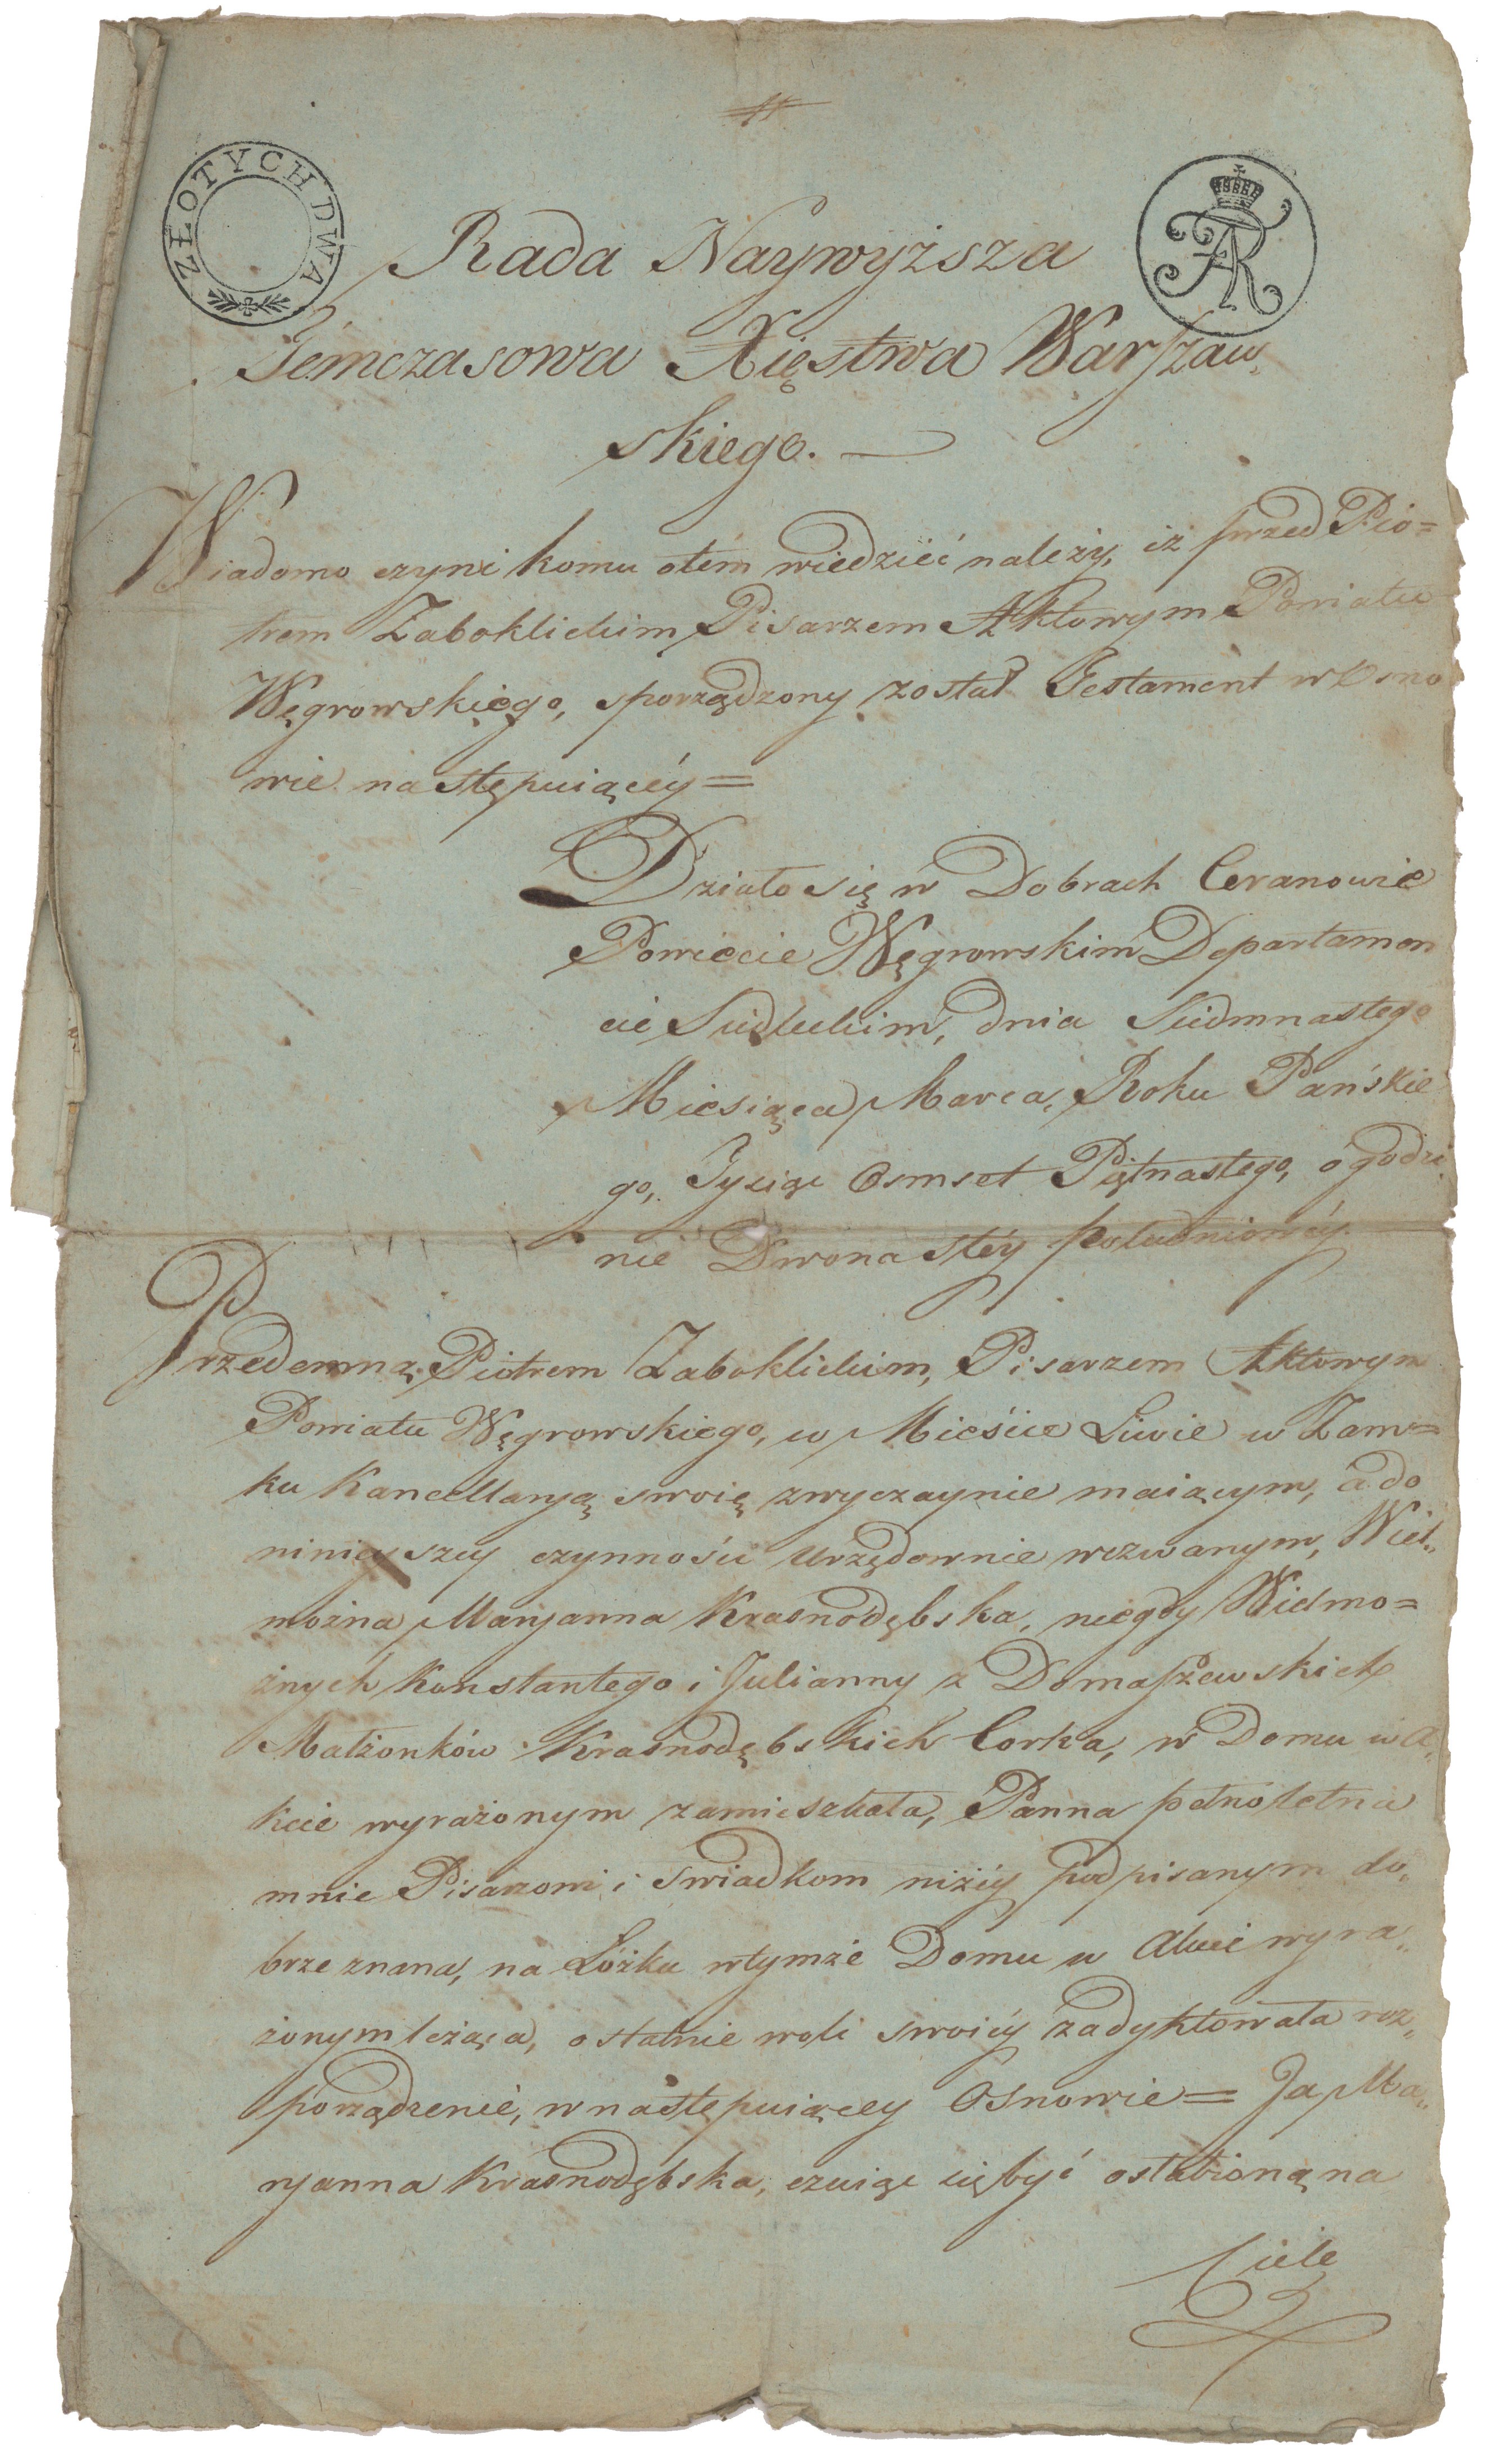 ZŁOTYCH DWA
FAR
Rada Naywyższa
Temczasowa Xięstwa Warszaw„
skiego. —
Wiadomo czyni komu otem wiedzieć należy, iż przed Pio=
trem Zaboklickim Pisarzem Aktowym Powiatu
Węgrowskiego, sporządzony został Testament w Osno
wie następuiącéy =
Działo się w Dobrach Ceranowie
Powiecie Węgrowskim Departamen
cie Siedleckim, dnia Siedmnastego
Miesiąca Marca, Roku Pańskie
go, Tysiąc Osmset Piętnastego, o godzi„
nie Dwonastéy południowéy.
Przedemną Piotrem Zaboklickim, Pisarzem Aktowym
Powiatu Węgrowskiego, w Mieście Liwie w Zam=
ku Kancellaryą swoię zwyczaynie maiącym, a do
ninieyszey czynności Urzędownie wezwanym, Wiel„
można Maryanna Krasnodębska, niegdy Wielmo=
żnych Konstantego i Julianny z Domaszewskich
Małżonków Krasnodębskich Corka, w Domu w A„
kcie wyrażonym zamieszkała, Panna pełnoletna
mnie Pisarzowi i Swiadkom niżéy podpisanym do„
brze znana, na Łóżku wtymże Domu w Akcie wyra„
żonym leżąca, ostatnie woli swoiéy zadyktowała roz„
porządzenie, w następuiącey Osnowie = Ja Ma„
ryanna Krasnodębska, czuiąc się być osłabioną na
Ciele